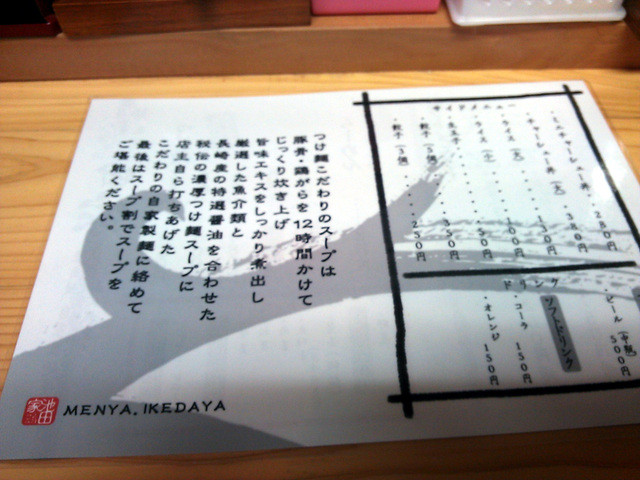 サイドメニュー
・ミニチャーシュー丼 280円
・チャーシュー丼(大) 380円
・ライス(大) 130円
・ライス 100円
・生玉子 50円
・餃子(5個) 350円
・餃子(3個) 250円
ドリンク
・ビール(中瓶) 500円
ソフトドリンク
・コーラ 150円
・オレンジ 150円
つけ麺こだわりのスープは
豚骨・鶏がらを12時間かけて
じっくり炊き上げ
旨味エキスをしっかり煮出し
厳選した魚介類と
長崎産の特選醤油を合わせた
秘伝の濃厚つけ麺スープに
店主自ら打ちあげた
こだわりの自家製麺に絡めて
最後はスープ割でスープを
ご堪能ください。
池田家
MENYA.IKEDAYA